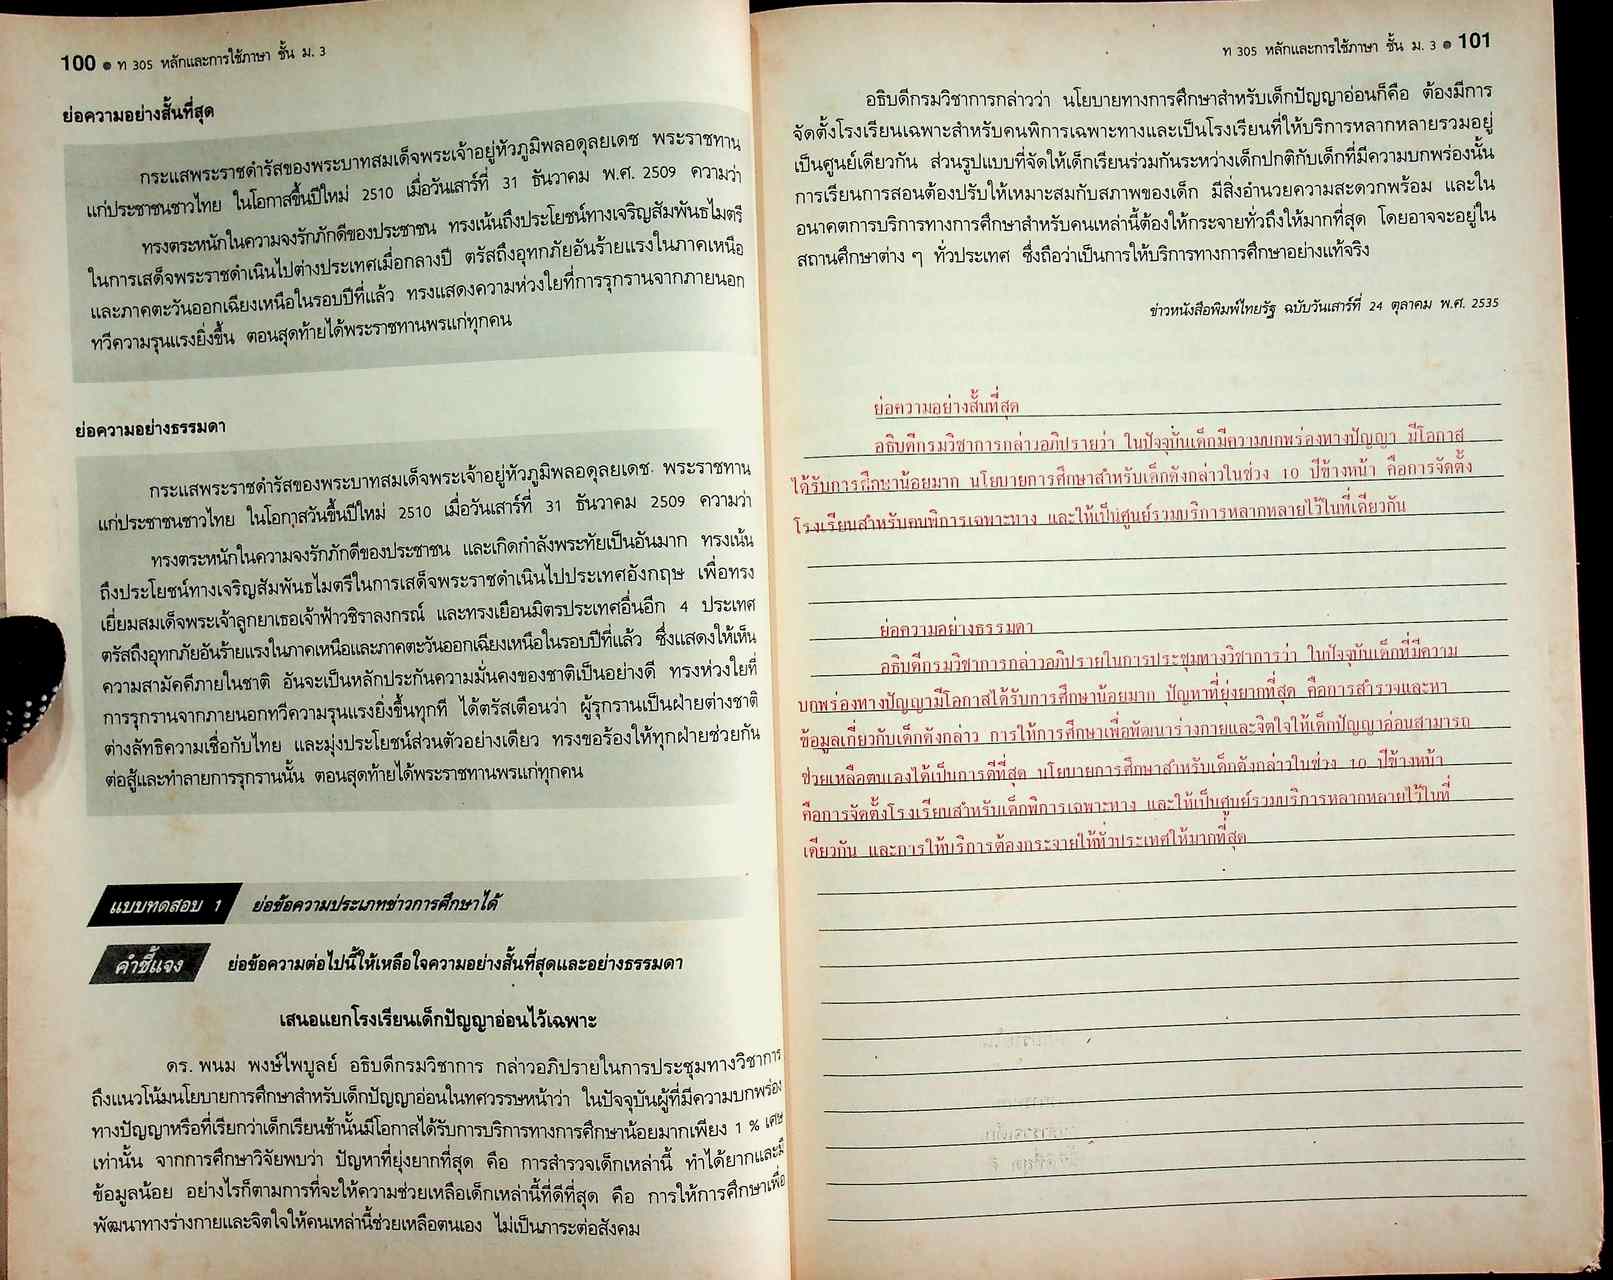 100 ● ท 305 หลักและการใช้ภาษา ชั้น ม. 3
ย่อความอย่างสั้นที่สุด
กระแสพระราชดำรัสของพระบาทสมเด็จพระเจ้าอยู่หัวภูมิพลอดุลยเดช พระราชทาน
แก่ประชาชนชาวไทย ในโอกาสขึ้นปีใหม่ 2510 เมื่อวันเสาร์ที่ 31 ธันวาคม พ.ศ. 2509 ความว่า
ทรงตระหนักในความจงรักภักดีของประชาชน ทรงเน้นถึงประโยชน์ทางเจริญสัมพันธไมตรี
ในการเสด็จพระราชดำเนินไปต่างประเทศเมื่อกลางปี ตรัสถึงอุทกภัยอันร้ายแรงในภาคเหนือ
และภาคตะวันออกเฉียงเหนือในรอบปีที่แล้ว ทรงแสดงความห่วงใยที่การรุกรานจากภายนอก
ทวีความรุนแรงยิ่งขึ้น ตอนสุดท้ายได้พระราชทานพรแก่ทุกคน
ย่อความอย่างธรรมดา
กระแสพระราชดำรัสของพระบาทสมเด็จพระเจ้าอยู่หัวภูมิพลอดุลยเดช พระราชทาน
แก่ประชาชนชาวไทย ในโอกาสวันขึ้นปีใหม่ 2510 เมื่อวันเสาร์ที่ 31 ธันวาคม 2509 ความว่า
ทรงตระหนักในความจงรักภักดีของประชาชน และเกิดกำลังพระทัยเป็นอันมาก ทรงเน้น
ถึงประโยชน์ทางเจริญสัมพันธไมตรีในการเสด็จพระราชดำเนินไปประเทศอังกฤษ เพื่อทรง
เยี่ยมสมเด็จพระเจ้าลูกยาเธอเจ้าฟ้าวชิราลงกรณ์ และทรงเยือนมิตรประเทศอื่นอีก 4 ประเทศ
ตรัสถึงอุทกภัยอันร้ายแรงในภาคเหนือและภาคตะวันออกเฉียงเหนือในรอบปีที่แล้ว ซึ่งแสดงให้เห็น
ความสามัคคีภายในชาติ อันจะเป็นหลักประกันความมั่นคงของชาติเป็นอย่างดี ทรงห่วงใยที่
การรุกรานจากภายนอกทวีความรุนแรงยิ่งขึ้นทุกที ได้ตรัสเตือนว่า ผู้รุกรานเป็นฝ่ายต่างชาติ
ต่างลัทธิความเชื่อกับไทย และมุ่งประโยชน์ส่วนตัวอย่างเดียว ทรงขอร้องให้ทุกฝ่ายช่วยกัน
ต่อสู้และทำลายการรุกรานนั้น ตอนสุดท้ายได้พระราชทานพรแก่ทุกคน
แบบทดสอบ 1 ย่อข้อความประเภทข่าวการศึกษาได้
คำชี้แจง ย่อข้อความต่อไปนี้ให้เหลือใจความอย่างสั้นที่สุดและอย่างธรรมดา
เสนอแยกโรงเรียนเด็กปัญญาอ่อนไว้เฉพาะ
ดร. พนม พงษ์ไพบูลย์ อธิบดีกรมวิชาการ กล่าวอภิปรายในการประชุมทางวิชาการ
ถึงแนวโน้มนโยบายการศึกษาสำหรับเด็กปัญญาอ่อนในทศวรรษหน้าว่า ในปัจจุบันผู้ที่มีความบกพร่อง
ทางปัญญาหรือที่เรียกว่าเด็กเรียนช้านั้นมีโอกาสได้รับการบริการทางการศึกษาน้อยมากเพียง 1 % เศษ
เท่านั้น จากการศึกษาวิจัยพบว่า ปัญหาที่ยุ่งยากที่สุด คือ การสำรวจเด็กเหล่านี้ ทำได้ยากและมี
ข้อมูลน้อย อย่างไรก็ตามการที่จะให้ความช่วยเหลือเด็กเหล่านี้ที่ดีที่สุด คือ การให้การศึกษาเพื่อ
พัฒนาทางร่างกายและจิตใจให้คนเหล่านี้ช่วยเหลือตนเอง ไม่เป็นภาระต่อสังคม
ท 305 หลักและการใช้ภาษา ชั้น ม. 3 ● 101
อธิบดีกรมวิชาการกล่าวว่า นโยบายทางการศึกษาสำหรับเด็กปัญญาอ่อนก็คือ ต้องมีการ
จัดตั้งโรงเรียนเฉพาะสำหรับคนพิการเฉพาะทางและเป็นโรงเรียนที่ให้บริการหลากหลายรวมอยู่
เป็นศูนย์เดียวกัน ส่วนรูปแบบที่จัดให้เด็กเรียนร่วมกันระหว่างเด็กปกติกับเด็กที่มีความบกพร่องนั้น
การเรียนการสอนต้องปรับให้เหมาะสมกับสภาพของเด็ก มีสิ่งอำนวยความสะดวกพร้อม และใน
อนาคตการบริการทางการศึกษาสำหรับคนเหล่านี้ต้องให้กระจายทั่วถึงให้มากที่สุด โดยอาจจะอยู่ใน
สถานศึกษาต่าง ๆ ทั่วประเทศ ซึ่งถือว่าเป็นการให้บริการทางการศึกษาอย่างแท้จริง
ข่าวหนังสือพิมพ์ไทยรัฐ ฉบับวันเสาร์ที่ 24 ตุลาคม พ.ศ. 2535
ย่อความอย่างสั้นที่สุด
อธิบดีกรมวิชาการกล่าวอภิปรายว่า ในปัจจุบันเด็กมีความบกพร่องทางปัญญา มีโอกาส
ได้รับการศึกษาน้อยมาก นโยบายการศึกษาสำหรับเด็กดังกล่าวในช่วง 10 ปีข้างหน้า คือการจัดตั้ง
โรงเรียนสำหรับคนพิการเฉพาะทาง และให้เป็นศูนย์รวมบริการหลากหลายไว้ในที่เดียวกัน
ย่อความอย่างธรรมดา
อธิบดีกรมวิชาการกล่าวอภิปรายในการประชุมทางวิชาการว่า ในปัจจุบันเด็กที่มีความ
บกพร่องทางปัญญามีโอกาสได้รับการศึกษาน้อยมาก ปัญหาที่ยุ่งยากที่สุด คือการสำรวจและหา
ข้อมูลเกี่ยวกับเด็กดังกล่าว การให้การศึกษาเพื่อพัฒนาร่างกายและจิตใจให้เด็กปัญญาอ่อนสามารถ
ช่วยเหลือตนเองได้เป็นการดีที่สุด นโยบายการศึกษาสำหรับเด็กดังกล่าวในช่วง 10 ปีข้างหน้า
คือการจัดตั้งโรงเรียนสำหรับเด็กพิการเฉพาะทาง และให้เป็นศูนย์รวมบริการหลากหลายไว้ในที่
เดียวกัน และการให้บริการต้องกระจายให้ทั่วประเทศให้มากที่สุด